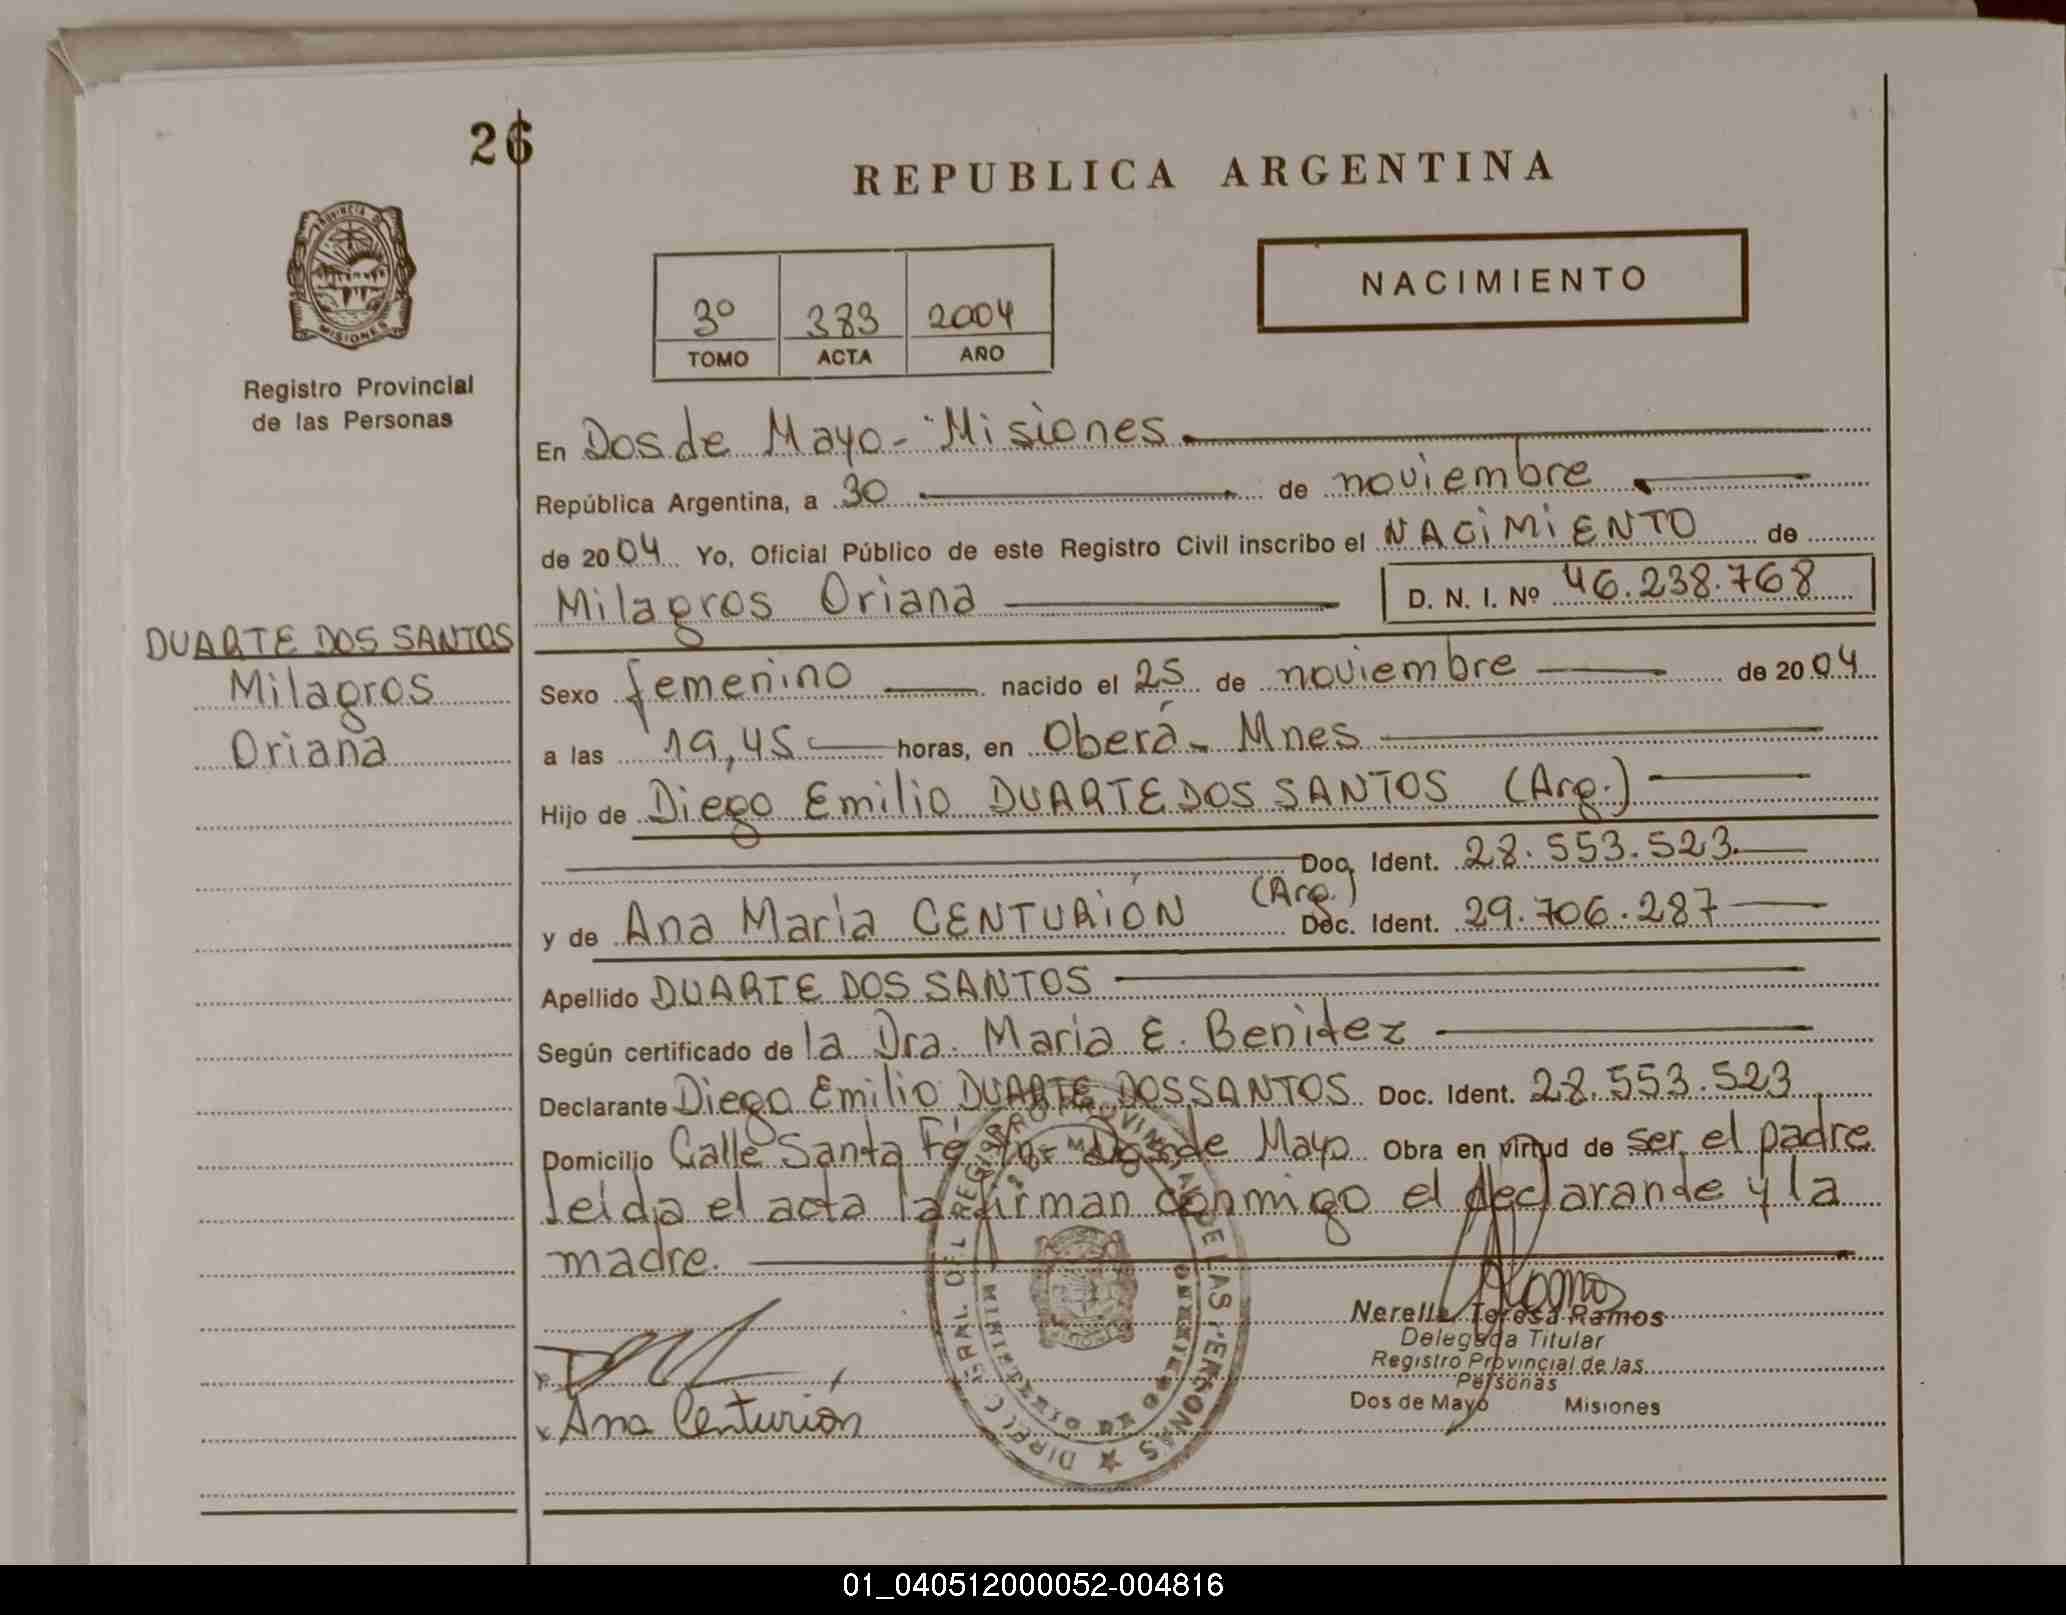 26
REPUBLICA ARGENTINA
PROVINCIA DE
MISIONES
Registro Provincial
de las Personas
3º 383 2004
TOMO ACTA AÑO
NACIMIENTO
En Dos de Mayo - Misiones
República Argentina, a 30 de noviembre
de 2004 Yo, Oficial Público de este Registro Civil inscribo el NACIMIENTO de
Milagros Oriana D. N. I. Nº 46.238.768
DUARTE DOS SANTOS
Milagros
Oriana
Sexo femenino nacido el 25 de noviembre de 2004
a las 19,45 horas, en Oberá - Mnes
Hijo de Diego Emilio DUARTE DOS SANTOS (Arg.)
Doc. Ident. 28.553.523
y de Ana María CENTURIÓN (Arg.) Doc. Ident. 29.706.287
Apellido DUARTE DOS SANTOS
Según certificado de la Dra. María E. Benitez
Declarante Diego Emilio DUARTE DOS SANTOS Doc. Ident. 28.553.523
Domicilio Calle Santa Fé Dos de Mayo Obra en virtud de ser el padre
leída el acta la firman conmigo el declarande y la
madre.
Nerella Teresa Ramos
Delegada Titular
Registro Provincial de las
Personas
Dos de Mayo Misiones
x Ana Centurión
01_040512000052-004816